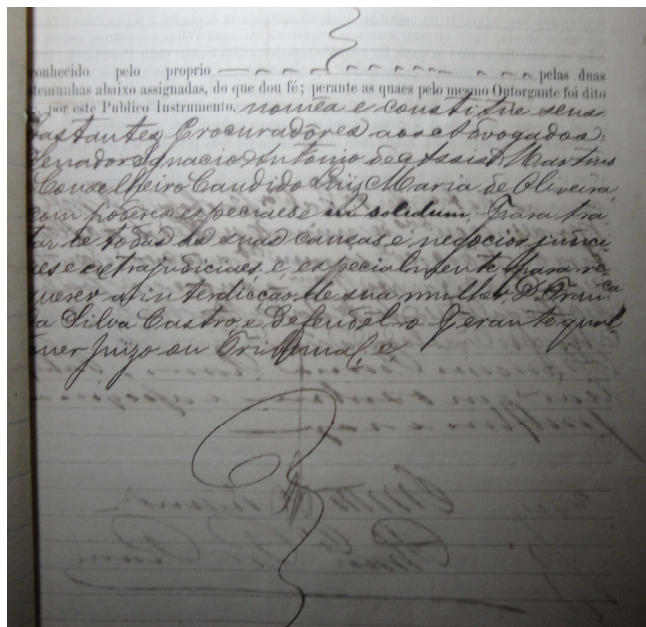 conhecido pelo proprio — pelas duas
temunhas abaixo assignadas, do que dou fé; perante as quaes pelo mesmo Outorgante foi dito
, por este Publico Instrumento, nomêa e constitue seus
bastantes Procuradores aos Advogados:
Senador Ignacio Antonio de Assis Martins
Conselheiro Candido Luiz Maria de Oliveira,
com poderes especiaes e in solidum, para tra
tar de todas as suas causas e negocios judici
aes e extrajudiciaes, e, especialmente para re
querer a interdicção de sua mulher D. Franca
da Silva Castro, e defendel-o perante qual
quer Juizo ou Tribunal, e